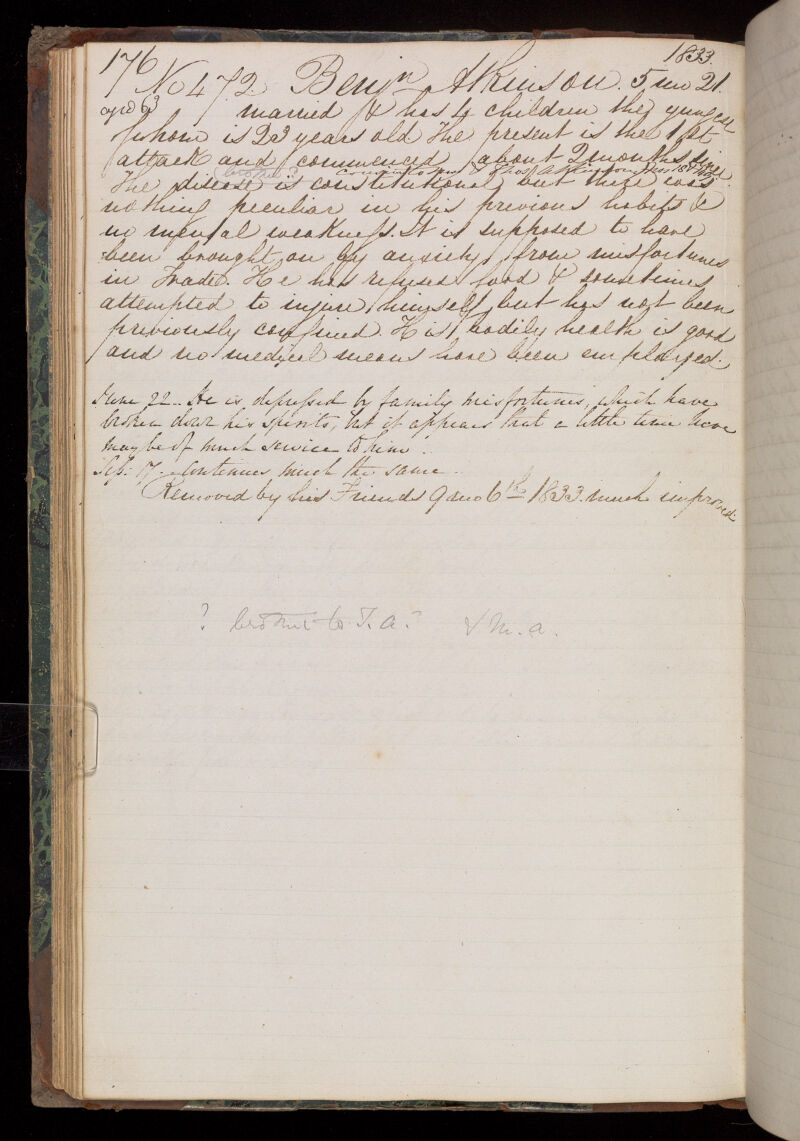 176
1833.
No 472 Benjn Atkinson. 5 mo 21.
aged 63
married & has 4 children the youngest
of whom is 23 years old The present is the 1st
attack and commenced about 2 months since
brother? cousin to Thos Atkinson
The disease is constitutional but there was
nothing peculiar in his previous habits &
no mental weakness. It is supposed to have
been brought on by anxiety from misfortunes
in Trade. He has refused food & sometimes
attempted to injure himself but has not been
previously confined. His bodily health is good
and no medical means have been employed.
June 22. He is depressed by family misfortunes, which have
broken down his spirits, but it appears that a little time here
may be of much service to him.
Sep: 17. Continues much the same.
Removed by his Friends 9 mo 6th 1833. much improved.
? brother to T. A.? & M. A.